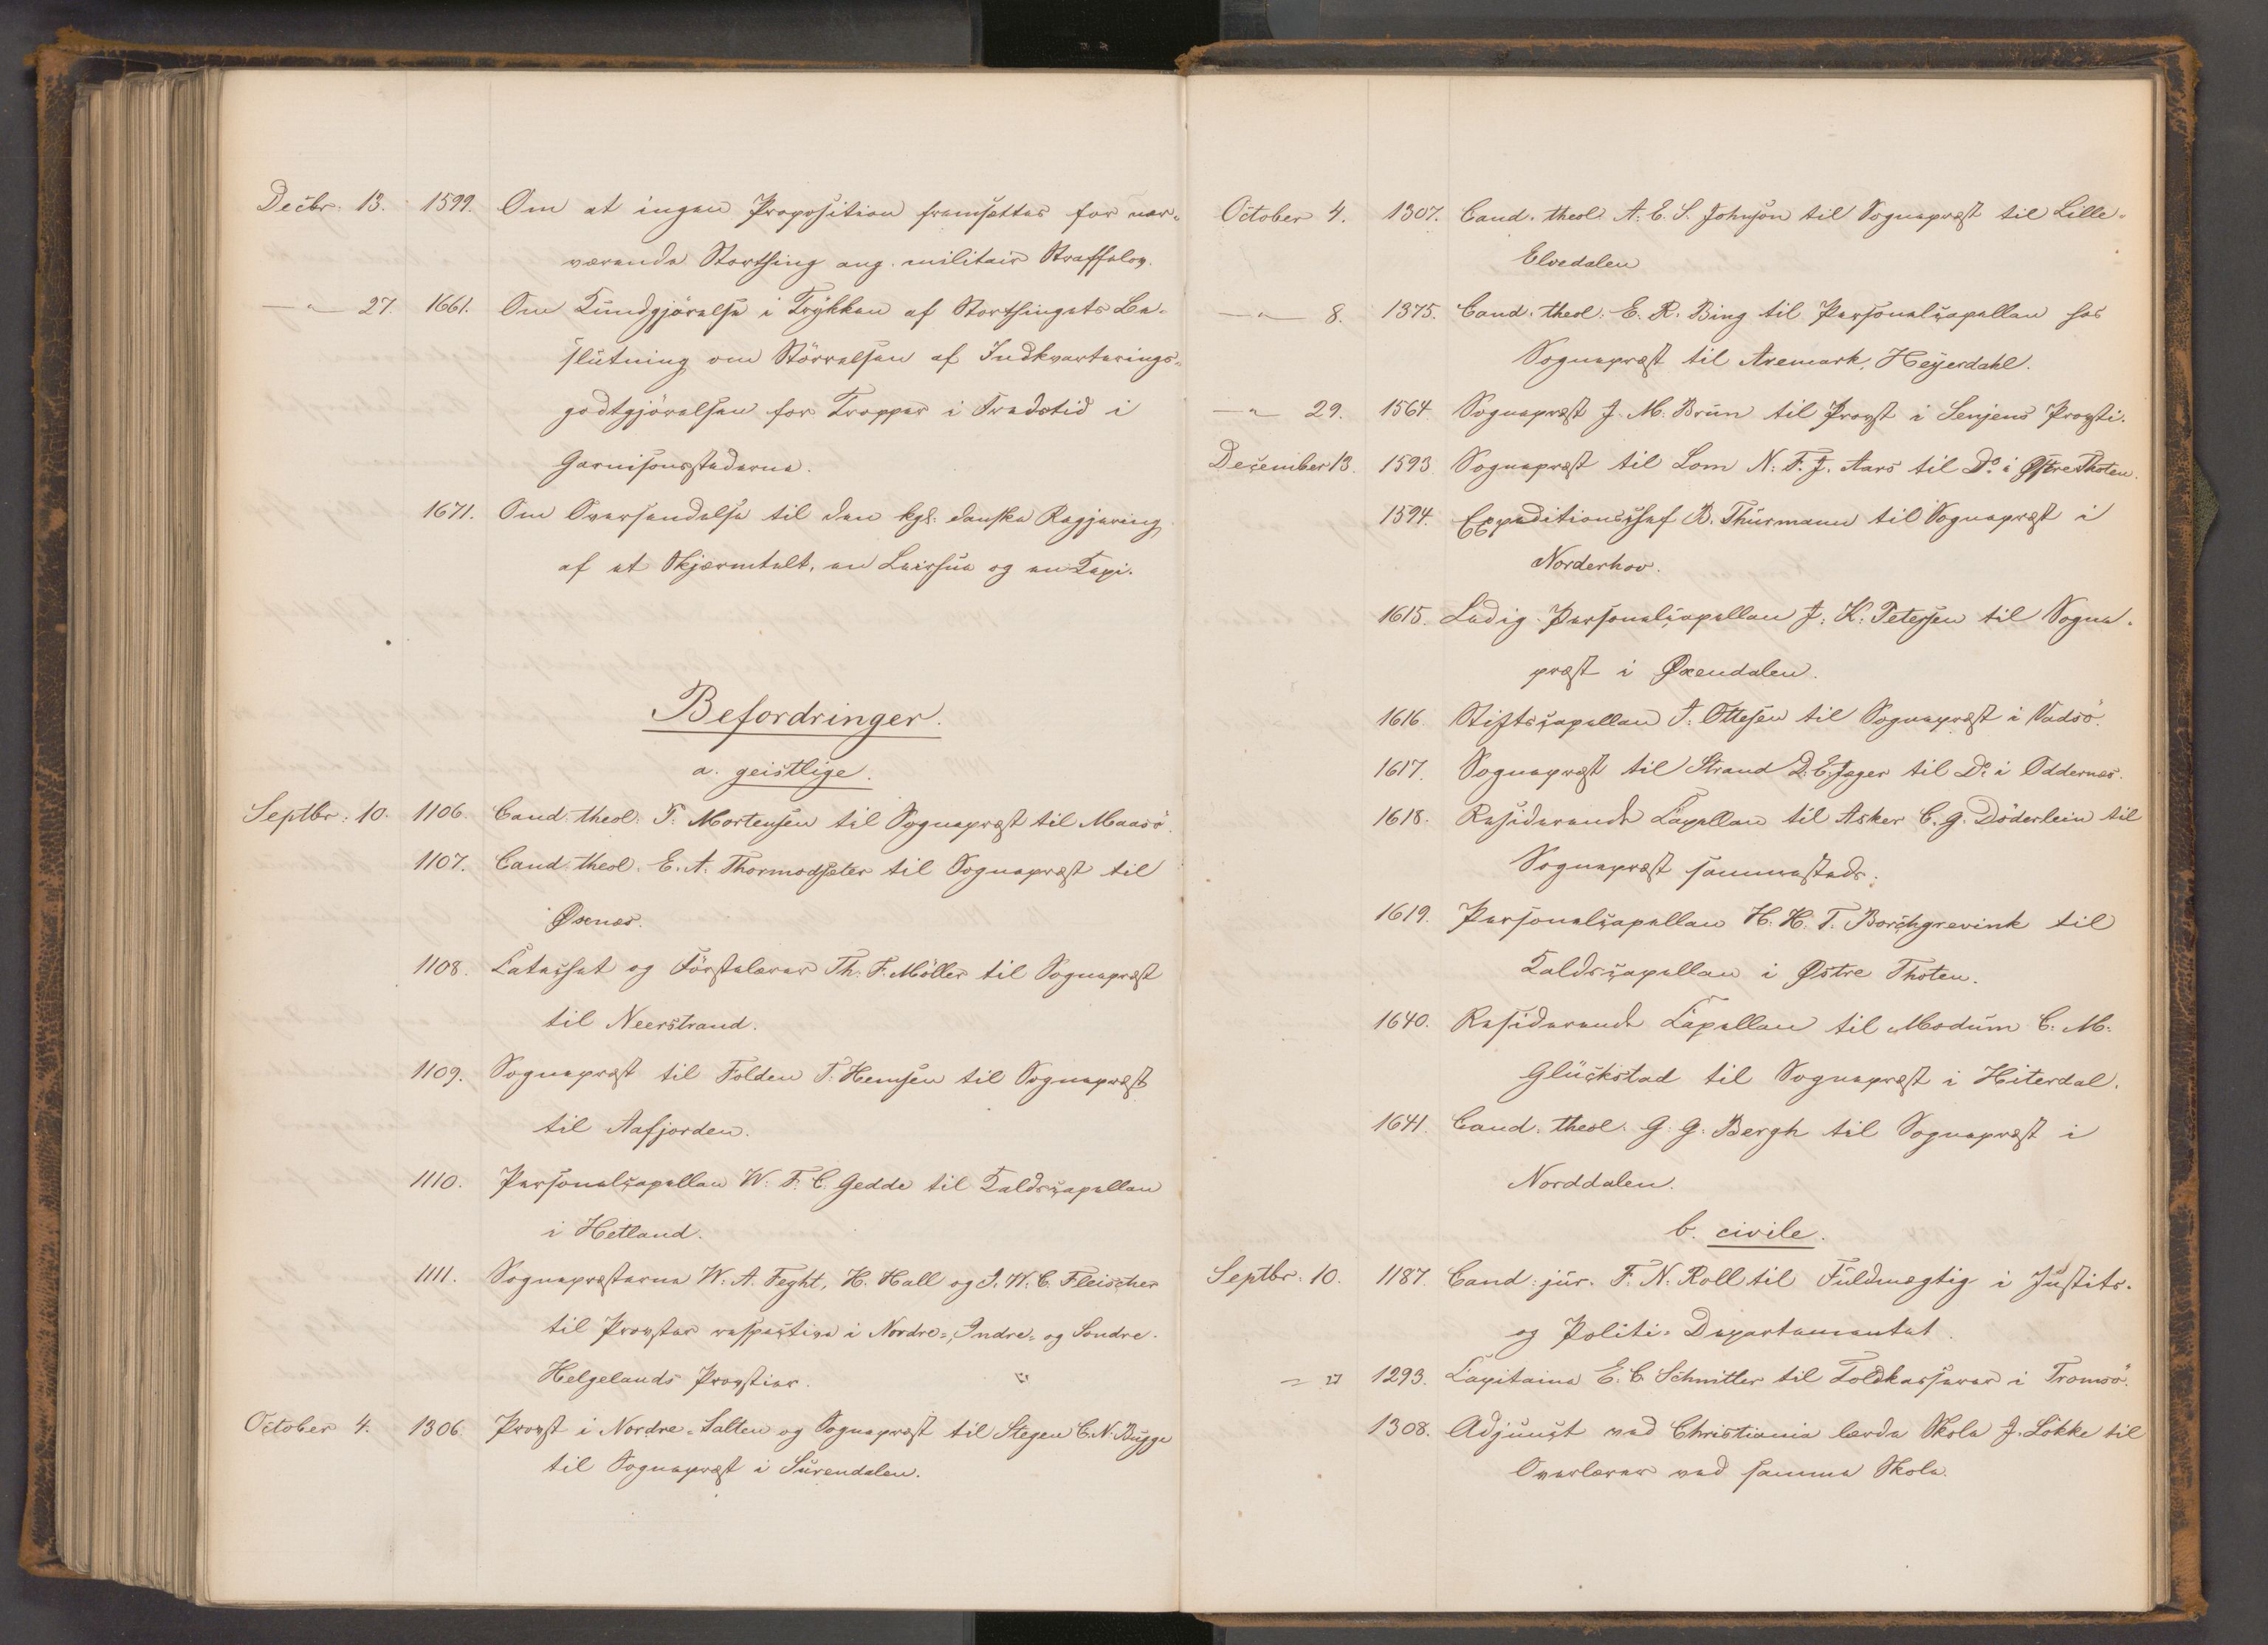 Decbr. 13. 1599. Om at ingen Proposition fremsættes for nær-
værende Storthing ang. militair Straffelov.
—"— 27. 1661. Om Kundgjörelse i Trykken af Storthingets Be-
slutning om Störrelsen af Indkvarterings-
godtgjörelsen for Tropper i Fredstid i
Garnisonsstæderne.
1671. Om Oversendelse til den kgl. danske Regjering
af et Skjærmtelt, en Laissue og en Kepi.
Befordringer.
a. geistlige.
Septbr. 10. 1106. Cand. theol. T. Mortensen til Sognepræst til Maasö.
1107. Cand. theol. E. A. Thormodsæter til Sognepræst til
Øxnæs.
1108. Catechet og Förstelærer Th. F. Möller til Sognepræst
til Neerstrand.
1109. Sognepræst til Folden T. Hemsen til Sognepræst
til Aafjorden.
1110. Personelcapellan W. F. C. Gedde til Kaldscapellan
i Hetland.
1111. Sognepræsterne W. A. Feght, H. Hall og J. W. C. Fleischer
til Provster respective i Nordre-, Indre- og Sondre-
Helgelands Provstier.
October 4. 1306. Provst i Nordre-Salten og Sognepræst til Stegen C. N. Bugge
til Sognepræst i Surendalen.
October 4. 1307. Cand. theol. A. E. S. Johnson til Sognepræst til Lille-
Elvedalen
—"— 8. 1375. Cand. theol. E. R. Bing til Personelcapellan hos
Sognepræst til Aremark, Heyerdahl.
—"— 29. 1564 Sognepræst J. M. Brun til Provst i Senjens Provsti.
December 13. 1593 Sognepræst til Lom N. F. J. Aars til Do. i Østre Thoten.
1594. Expeditionschef B. Thurmann til Sognepræst i
Norderhov.
1615. Ledig Personelcapellan J. K. Petersen til Sogne-
præst i Øxendalen.
1616. Stiftscapellan J. Ottesen til Sognepræst i Vadsö.
1617. Sognepræst til Strand D. E. Jæger til Do. i Oddernæs.
1618. Residerende Capellan til Asker C. G. Döderlein til
Sognepræst sammesteds.
1619. Personelcapellan H. H. T. Borchgrevink til
Kaldscapellan i Østre Thoten.
1640. Residerende Capellan til Modum C. M.
Glückstad til Sognepræst i Hiterdal.
1641. Cand. theol. G. G. Bergh til Sognepræst i
Norddalen.
b. civile.
Septbr. 10. 1187. Cand. jur. F. N. Roll til Fuldmægtig i Justits-
og Politi-Departementet.
— 17 1293. Capitaine E. C. Schnitler til Toldkasserer i Tromsö.
1308. Adjunct ved Christiania lærde Skole J. Lökke til
Overlærer ved samme Skole.